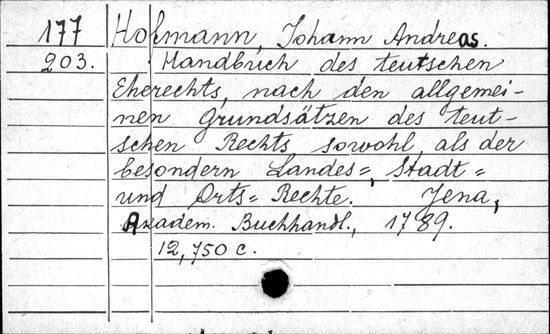 177 Hofmann, Johann Andreas.
203. Handbuch des teutschen
Eherechts, nach den allgemei-
nen Grundsätzen des teut-
schen Rechts sowohl, als der
besondern Landes=, Stadt=
und Orts=Rechte. Jena,
Akadem. Buchhandl., 1789.
12,750 c.